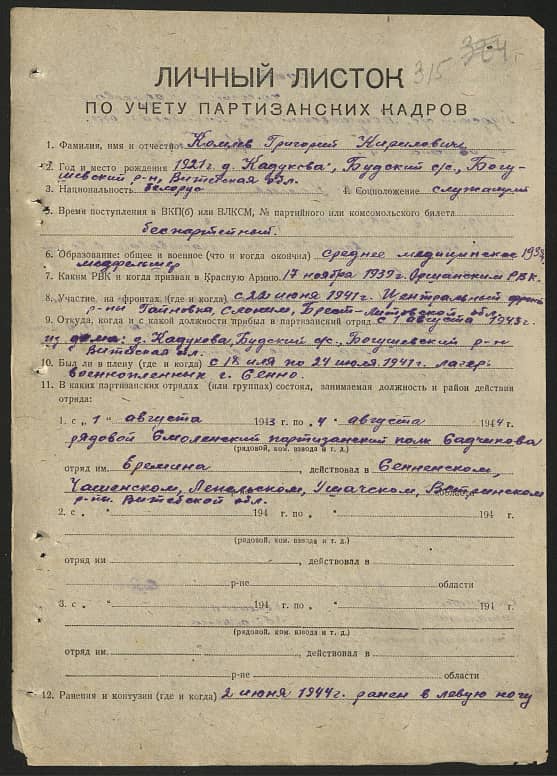 315
ЛИЧНЫЙ ЛИСТОК
ПО УЧЕТУ ПАРТИЗАНСКИХ КАДРОВ
1. Фамилия, имя и отчество Комлев Григорий Кирилович
2. Год и место рождения 1921 г. д. Кадукова, Будский с/с, Богу-
шевский р-н, Витебская обл.
3. Национальность белорус 4. Соцположение служащий
5. Время поступления в ВКП(б) или ВЛКСМ, № партийного или комсомольского билета
беспартейный.
6. Образование: общее и военное (что и когда окончил) среднее медицинское 1939
медфельшер
7. Каким РВК и когда призван в Красную Армию. 17 ноября 1939 г. Оршанским РВК.
8. Участие, на фронтах (где и когда) с 22 июня 1941 г. Центральный фронт
р-ны Гайновка, Слоним, Брест-Литовской обл.
9. Откуда, когда и с какой должности прибыл в партизанский отряд с 1 августа 1943 г.
из дома: д. Кадукова, Будский с/с, Богушевский р-н
Витебская обл.
10. Был ли в плену (где и когда) с 18 июля по 24 июля 1941 г. лагерь
военнопленных г. Сенно.
11. В каких партизанских отрядах (или группах) состоял, занимаемая должность и район действия
отряда:
1. с „1 " августа 1943 г. по „4 " августа 1944 г.
рядовой Смоленский партизанский полк Садчикова
(рядовой, ком. взвода и т. д.)
отряд им. Еремина, действовал в Сенненском,
Чашенском, Лепельском, Ушачском, Ветринском
р-ны. Витебской обл.
2. с „ " 194 г. по „ " 194 г.
(рядовой, ком. взвода и т. д.)
отряд им , действовал в
р-не области
3. с „ " 194 г. по „ " 194 г.
(рядовой, ком. взвода и т. д.)
отряд им. , действовал в
р-не области
12. Ранения и контузии (где и когда) 2 июня 1944 г. ранен в левую ногу